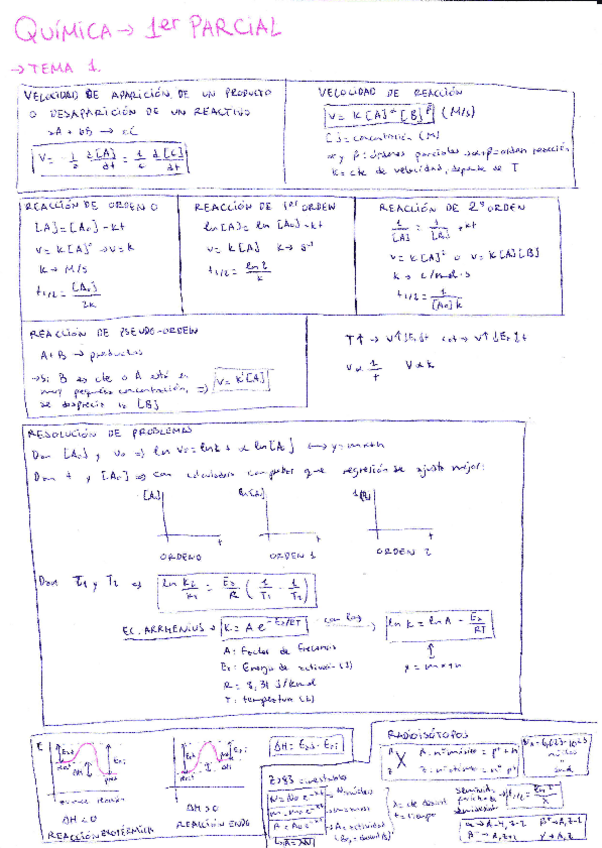 QUÍMICA → 1er PARCIAL
→ TEMA 1.
VELOCIDAD DE APARICIÓN DE UN PRODUCTO
O DESAPARICIÓN DE UN REACTIVO
aA + bB → cC
V = - 1/a d[A]/dt = 1/c d[C]/dt
VELOCIDAD DE REACCIÓN
v = k [A]^α [B]^β (M/s)
[ ] = concentración (M)
α y β: órdenes parciales → α+β = orden reacción
k = cte de velocidad, depende de T
REACCIÓN DE ORDEN 0
[A] = [A₀] - kt
v = k[A]° → v = k
k → M/s
t1/2 = [A₀]/2k
REACCIÓN DE 1er ORDEN
ln [A] = ln [A₀] - kt
v = k [A] k → s⁻¹
t1/2 = ln 2/k
REACCIÓN DE 2º ORDEN
1/[A] = 1/[A₀] + kt
v = k [A]² o v = k[A][B]
k → L/mol·s
t1/2 = 1/[A₀]k
REACCIÓN DE PSEUDO-ORDEN
A+B → productos
→ Si B es cte o A está en
muy pequeña concentración, ⇒ v = k'[A]
se desprecia la [B]
T↑ → v↑ ↓Ea ↓t cat → v↑ ↓Ea ↓t
v α 1/t v α k
RESOLUCIÓN DE PROBLEMAS
Dan [A₀] y v₀ ⇒ ln v₀ = ln k + α ln [A₀] ↔ y = mx+n
Dan t y [A₀] ⇒ con calculadora comprobar que regresión se ajusta mejor:
[A₀] ln [A₀] 1/[A₀]
t t t
ORDEN 0 ORDEN 1 ORDEN 2
Dan T1 y T2 ⇒ ln K2/K1 = Ea/R (1/T1 - 1/T2)
EC. ARRHENIUS → K = A e^-Ea/RT con log → ln K = ln A - Ea/RT
A: Factor de frecuencia
Ea: Energía de activación (J)
R = 8,31 J/K·mol
T: temperatura (K)
y = mx+n
E
ΔH
avance reacción
ΔH < 0
REACCIÓN EXOTÉRMICA
ΔH > 0
REACCIÓN ENDO
ΔH = Ead - Eai
Z>83 = inestables
N = N₀ e^-λt → N = núcleos
m = m₀ e^-λt → m = masa
A = A₀ e^-λt → A = actividad
A = λN
t = tiempo
RADIOISÓTOPOS
A Z X A: nº másico = p⁺ + n
Z: nº atómico = nº p⁺
NA = 6,023·10²³
α → A-4, Z-2
β⁻ → A, Z+1
γ → A, Z